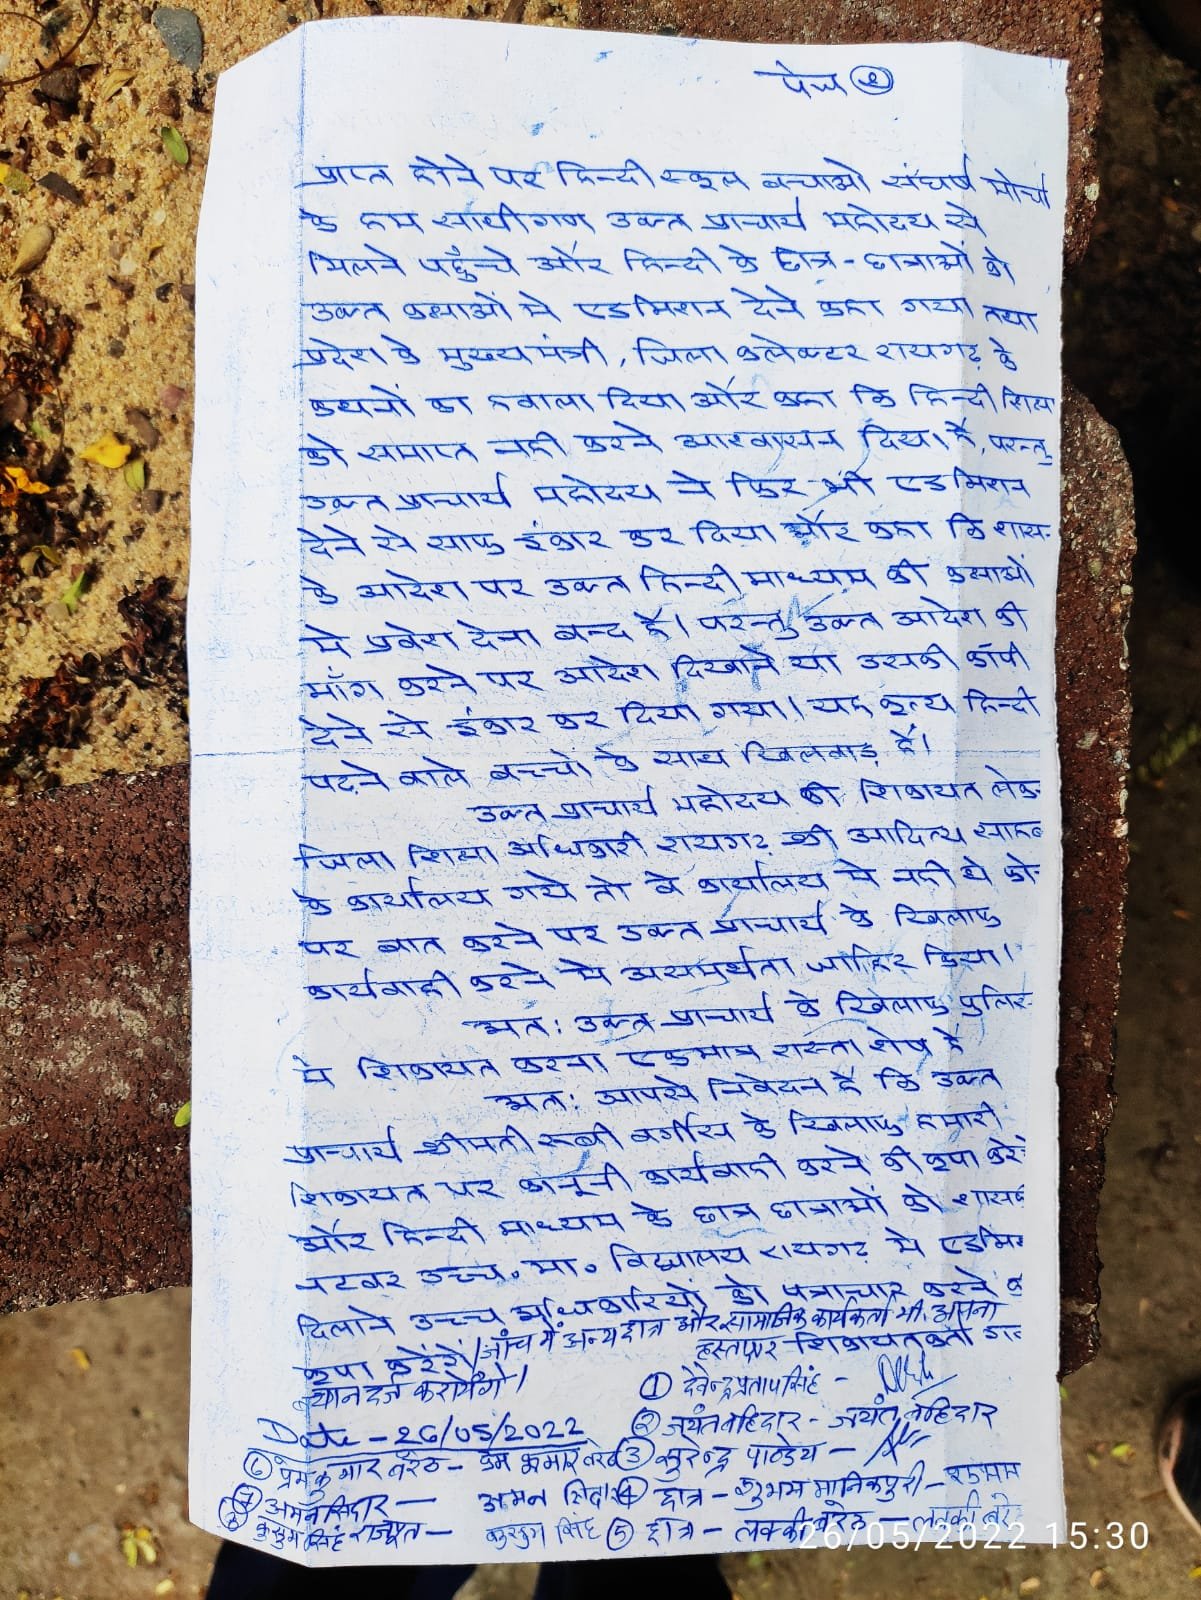 पेज ②
प्राप्त होने पर हिन्दी स्कूल बचाओ संघर्ष मोर्चा
के हम साथीगण उक्त प्राचार्य महोदय से
मिलने पहुँचे और हिन्दी के छात्र-छात्राओं को
उक्त कक्षाओं मे एडमिशन देने कहा गया तथा
प्रदेश के मुख्यमंत्री, जिला कलेक्टर रायगढ़ के
कथनों का हवाला दिया और कहा कि हिन्दी शिक्षा
को समाप्त नही करने आश्वासन दिया है, परन्तु
उक्त प्राचार्य महोदय ने फिर भी एडमिशन
देने से साफ इंकार कर दिया और कहा कि शास-
के आदेश पर उक्त हिन्दी माध्यम की कक्षाओं
मे प्रवेश देना बन्द है। परन्तु उक्त आदेश की
माँग करने पर आदेश दिखाने या उसकी कॉपी
देने से इंकार कर दिया गया। यह कृत्य हिन्दी
पढ़ने वाले बच्चों के साथ खिलवाड़ है।
उक्त प्राचार्य महोदय की शिकायत लेक
जिला शिक्षा अधिकारी रायगढ़ श्री आदित्य साहब
के कार्यालय गये तो वे कार्यालय मे नही थे फो
पर बात करने पर उक्त प्राचार्य के खिलाफ
कार्यवाही करने मे असमर्थता जाहिर किया।
अतः उक्त प्राचार्य के खिलाफ पुलिस
मे शिकायत करना एकमात्र रास्ता शेष है
अतः आपसे निवेदन है कि उक्त
प्राचार्य श्रीमती रूबी वर्गीस के खिलाफ हमारी
शिकायत पर कानूनी कार्यवाही करने की कृपा करें
और हिन्दी माध्यम के छात्र छात्राओं को शासकी
नटवर उच्च. मा. विद्यालय रायगढ़ मे एडमि
दिलाने उच्च अधिकारियों को पत्राचार करने क
कृपा करेंगे। जाँच में अन्य छात्र और सामाजिक कार्यकर्ता भी अपना
बयान दर्ज करायेंगे।
हस्ताक्षर शिकायतकर्ता गण
① देवेन्द्र प्रताप सिंह -
Date - 26/05/2022
② जयंत बहिदार - जयंत बहिदार
⑥ प्रेम कुमार बरेठ - प्रेम कुमार बरेठ
③ सुरेन्द्र पाण्डेय -
⑦ अमन सिदार - अमन सिदार
④ छात्र - शुभम मानिकपुरी -
⑧ कुसुम सिंह राजपूत - कुसुम सिंह
⑤ छात्र - लक्की बरेठ - लक्की बरे
26/05/2022 15:30